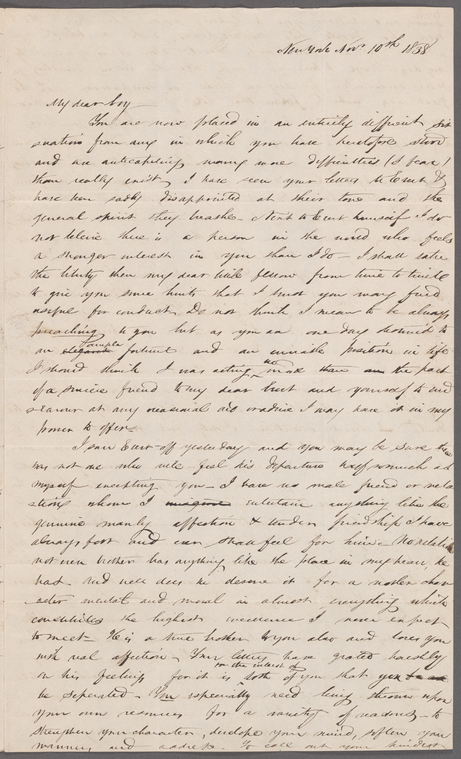 New York Nov 10th 1858
My dear boy
You are now placed in an entirely different sit
uation from any in which you have heretofore stood
and are anticipating many more difficulties (I fear)
than really exist. I have seen your letters to Evert &
have been sadly disappointed at their tone and the
general spirit they breathe. Next to Evert himself I do
not believe there is a person in the world who feels
a stronger interest in you than I do. I shall take
the liberty then my dear little fellow from time to time
to give you some hints that I trust you may find
useful for conduct. Do not think I mean to be always
preaching to you but as you are one day destined to
an ample fortune and an enviable position in life
I should think I was acting not the part
of a sincere friend to my dear Evert and yourself to
at any occasional aid or advice I may have it in my
power to offer.
I saw Evert off yesterday and you may be sure there
was not one who felt his departure half so much as
myself excepting you. I have no male friend or rela
tion whom I entertain anything like the
genuine manly affection & tender friendship I have
always felt and ever shall feel for him. No relation
not even brother has anything like the place in my heart, he
has. And well does he deserve it for a nobler char
acter mental and moral in almost everything which
constitutes the highest excellence I never expect
to meet. He is a true brother to you also and loves you
with real affection. Your letters have grated harshly
on his feelings for it is for the interest of both of you that
be separated. You especially need being thrown upon
your own resources for a variety of reasons - to
strengthen your character, develope your mind, soften your
manners and address. To call out your kindest